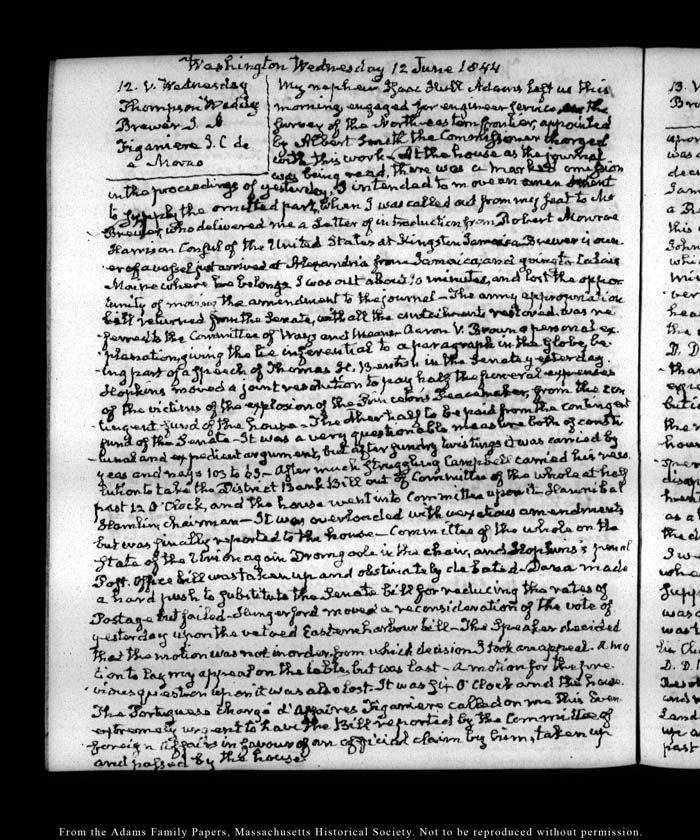 Washington Wednesday 12 June 1844
12. V. Wednesday
Thompson Waddy
Brewer J. A
Figaniere J. C de
e Morao
My nephew Isaac Hull Adams left us this
morning, engaged for engineer service, on the
survey of the North-eastern frontier, appointed
by Albert Smith the Commissioner charged
with this work. At the house as the journal
was being read, there was a marked omission
in the proceedings of yesterday, I intended to move an amendment
to supply the omitted part, when I was called out from my seat to Mr
Brewer, who delivered me a Letter of introduction from Robert Monroe
Harrison Consul of the United States at Kingston Jamaica. Brewer is own-
er of a vessel just arrived at Alexandria from Jamaica, and going to Calais
Maine where he belongs. I was out about 10 minutes, and lost the oppor-
tunity of moving the amendment to the journal — The army appropriation
bill returned from the Senate, with all the amendments restored, was re-
ferred to the Committee of Ways and Means. Aaron V. Brown a personal ex-
planation, giving the lie inferential to a paragraph in the Globe, be-
ing part of a speech of Thomas H. Benton in the Senate yesterday.
Hopkins moved a joint resolution to pay half the funeral expenses
of the victims of the explosion of the Princeton's Peacemaker, from the con-
tingent fund of the house — The other half to be paid from the contingent
fund of the Senate — It was a very questionable measure both of consti-
tutional and expedient argument, but after sundry twistings it was carried by
yeas and nays 103 to 63 — After much struggling Campbell carried his reso-
lution to take the District Bank Bill out of Committee of the whole at half
past 12 O'Clock, and the house went into Committee upon it — Hannibal
Hamlin, Chairman — It was overloaded with vexatious amendments
but was finally reported to the house — Committee of the whole on the
State of the Union again Dromgoole in the chair, and Hopkins's penal
Post Office bill was taken up and obstinately debated — Dana made
a hard push to substitute the Senate bill for reducing the rates of
Postage but failed — Hungerford moved a reconsideration of the vote of
yesterday upon the vetoed Eastern harbour bill — The Speaker decided
that the motion was not in order, from which decision I took an appeal. A mo-
tion to lay my appeal on the table, but was lost — A motion for the pre-
vious question upon it was also lost. It was six O'Clock and the house
The Portuguese Chargé d'Affaires Figaniere called on me this Even.
extremely urgent to have the Bill reported by the Committee of
foreign affairs in favour of an official claim by him, taken up
and passed by the house
From the Adams Family Papers, Massachusetts Historical Society. Not to be reproduced without permission.